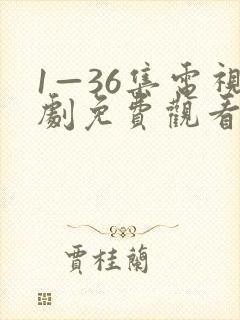 1—36集電視
劇免費觀看
賈桂蘭